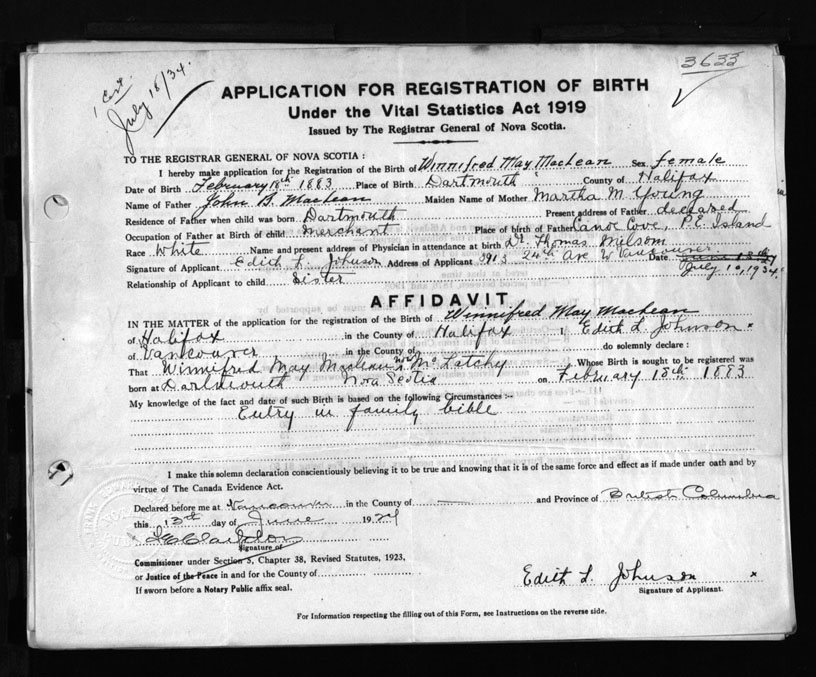 1 Cert.
July 18/34.
3633
APPLICATION FOR REGISTRATION OF BIRTH
Under the Vital Statistics Act 1919
Issued by The Registrar General of Nova Scotia.
TO THE REGISTRAR GENERAL OF NOVA SCOTIA :
I hereby make application for the Registration of the Birth of Winnifred May MacLean Sex female
Date of Birth February 18th 1883 Place of Birth Dartmouth County of Halifax
Name of Father John B. MacLean Maiden Name of Mother Martha M Young
Residence of Father when child was born Dartmouth Present address of Father deceased
Occupation of Father at Birth of child Merchant Place of birth of Father Canoe Cove, P.E. Island
Race White Name and present address of Physician in attendance at birth Dr. Thomas Milsom
Signature of Applicant Edith L. Johnson Address of Applicant 3913 24th Ave W Vancouver. Date June 13th
July 10, 1934.
Relationship of Applicant to child Sister
AFFIDAVIT
IN THE MATTER of the application for the registration of the Birth of Winnifred May MacLean
of Halifax in the County of Halifax I, Edith L. Johnson
of Vancouver in the County of do solemnly declare :
That Winnifred May MacLean now McLatchy Whose Birth is sought to be registered was
born at Dartmouth Nova Scotia on February 18th 1883
My knowledge of the fact and date of such Birth is based on the following Circumstances :-
Entry in family bible
I make this solemn declaration conscientiously believing it to be true and knowing that it is of the same force and effect as if made under oath and by
virtue of The Canada Evidence Act.
Declared before me at Vancouver in the County of and Province of British Columbia
this 13th day of June 19
Signature of
Commissioner under Section 5, Chapter 38, Revised Statutes, 1923,
or Justice of the Peace in and for the County of
If sworn before a Notary Public affix seal.
Edith L. Johnson x
Signature of Applicant.
For Information respecting the filling out of this Form, see Instructions on the reverse side.